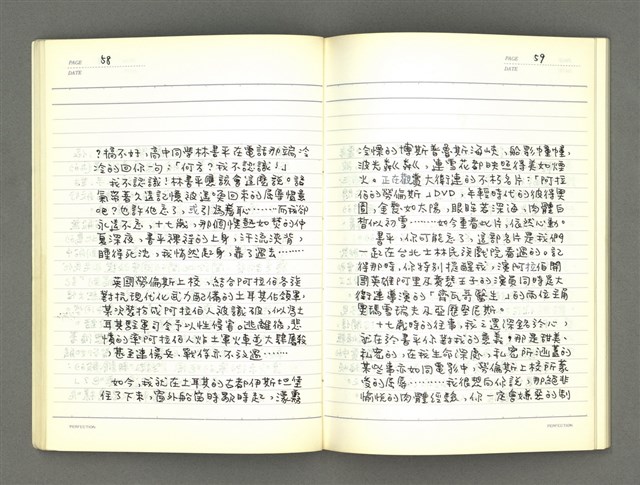 PAGE 58
DATE
？搞不好，高中同學林景平在電話那端冷
冷的回你一句：「何方？我不認識！」
我不認識！林景平應該會這麼說。語
氣帶著久遠記憶被逼喚回來的屈辱憎意
吧？也許他忘了，或引為羞恥………而我卻
永遠不忘，十七歲，那個懊熱如焚的仲
夏深夜，景平裸裎的上身，汗流浹背，
睡得死沈，我悄然起身，靠了過去………
英國勞倫斯上校，結合阿拉伯各族
對抗現代化武力配備的土耳其佔領軍，
某次裝扮成阿拉伯人被識破，似為土
耳其駐軍司令予以性侵害。逃離後，悲
憤的率阿拉伯人炸土軍火車並大肆屠殺
，甚至連傷兵、戰俘亦不放過………
如今，我就在土耳其的古都伊斯坦堡
住了下來，窗外船笛時歇時起，濛霧
PERFECTION
PAGE 59
DATE
冷慄的博斯普魯斯海峽，船影幢幢，
波光粼粼，連雪花都映照得美如煙
火。正在觀賞大衛連的不朽名片：「阿拉
伯的勞倫斯」DVD，年輕時代的彼得奧
圖，金髮如太陽，眼眸若深海，肉體白
皙似初雪………如今重看此片，依然心動。
景平，你可能忘了，這部名片是我們
一起在台北士林民族戲院看過的。記
得那時，你特別提醒我，演阿拉伯開
國英雄阿里及費瑟王子的演員同時是大
衛連導演的「齊瓦哥醫生」的兩位主角
奧瑪雪瑞夫及亞歷堅尼斯。
十七歲時的往事，我之還深銘於心，
就在於景平你對我的意義。那是甜美、
私密的，在我生命深處，私密所涵蓋的
某些事亦如同電影中，勞倫斯上校所蒙
受的屈辱………我很想向你說，那絕非
愉悅的肉體經驗，你一定會嫌惡的制
PERFECTION